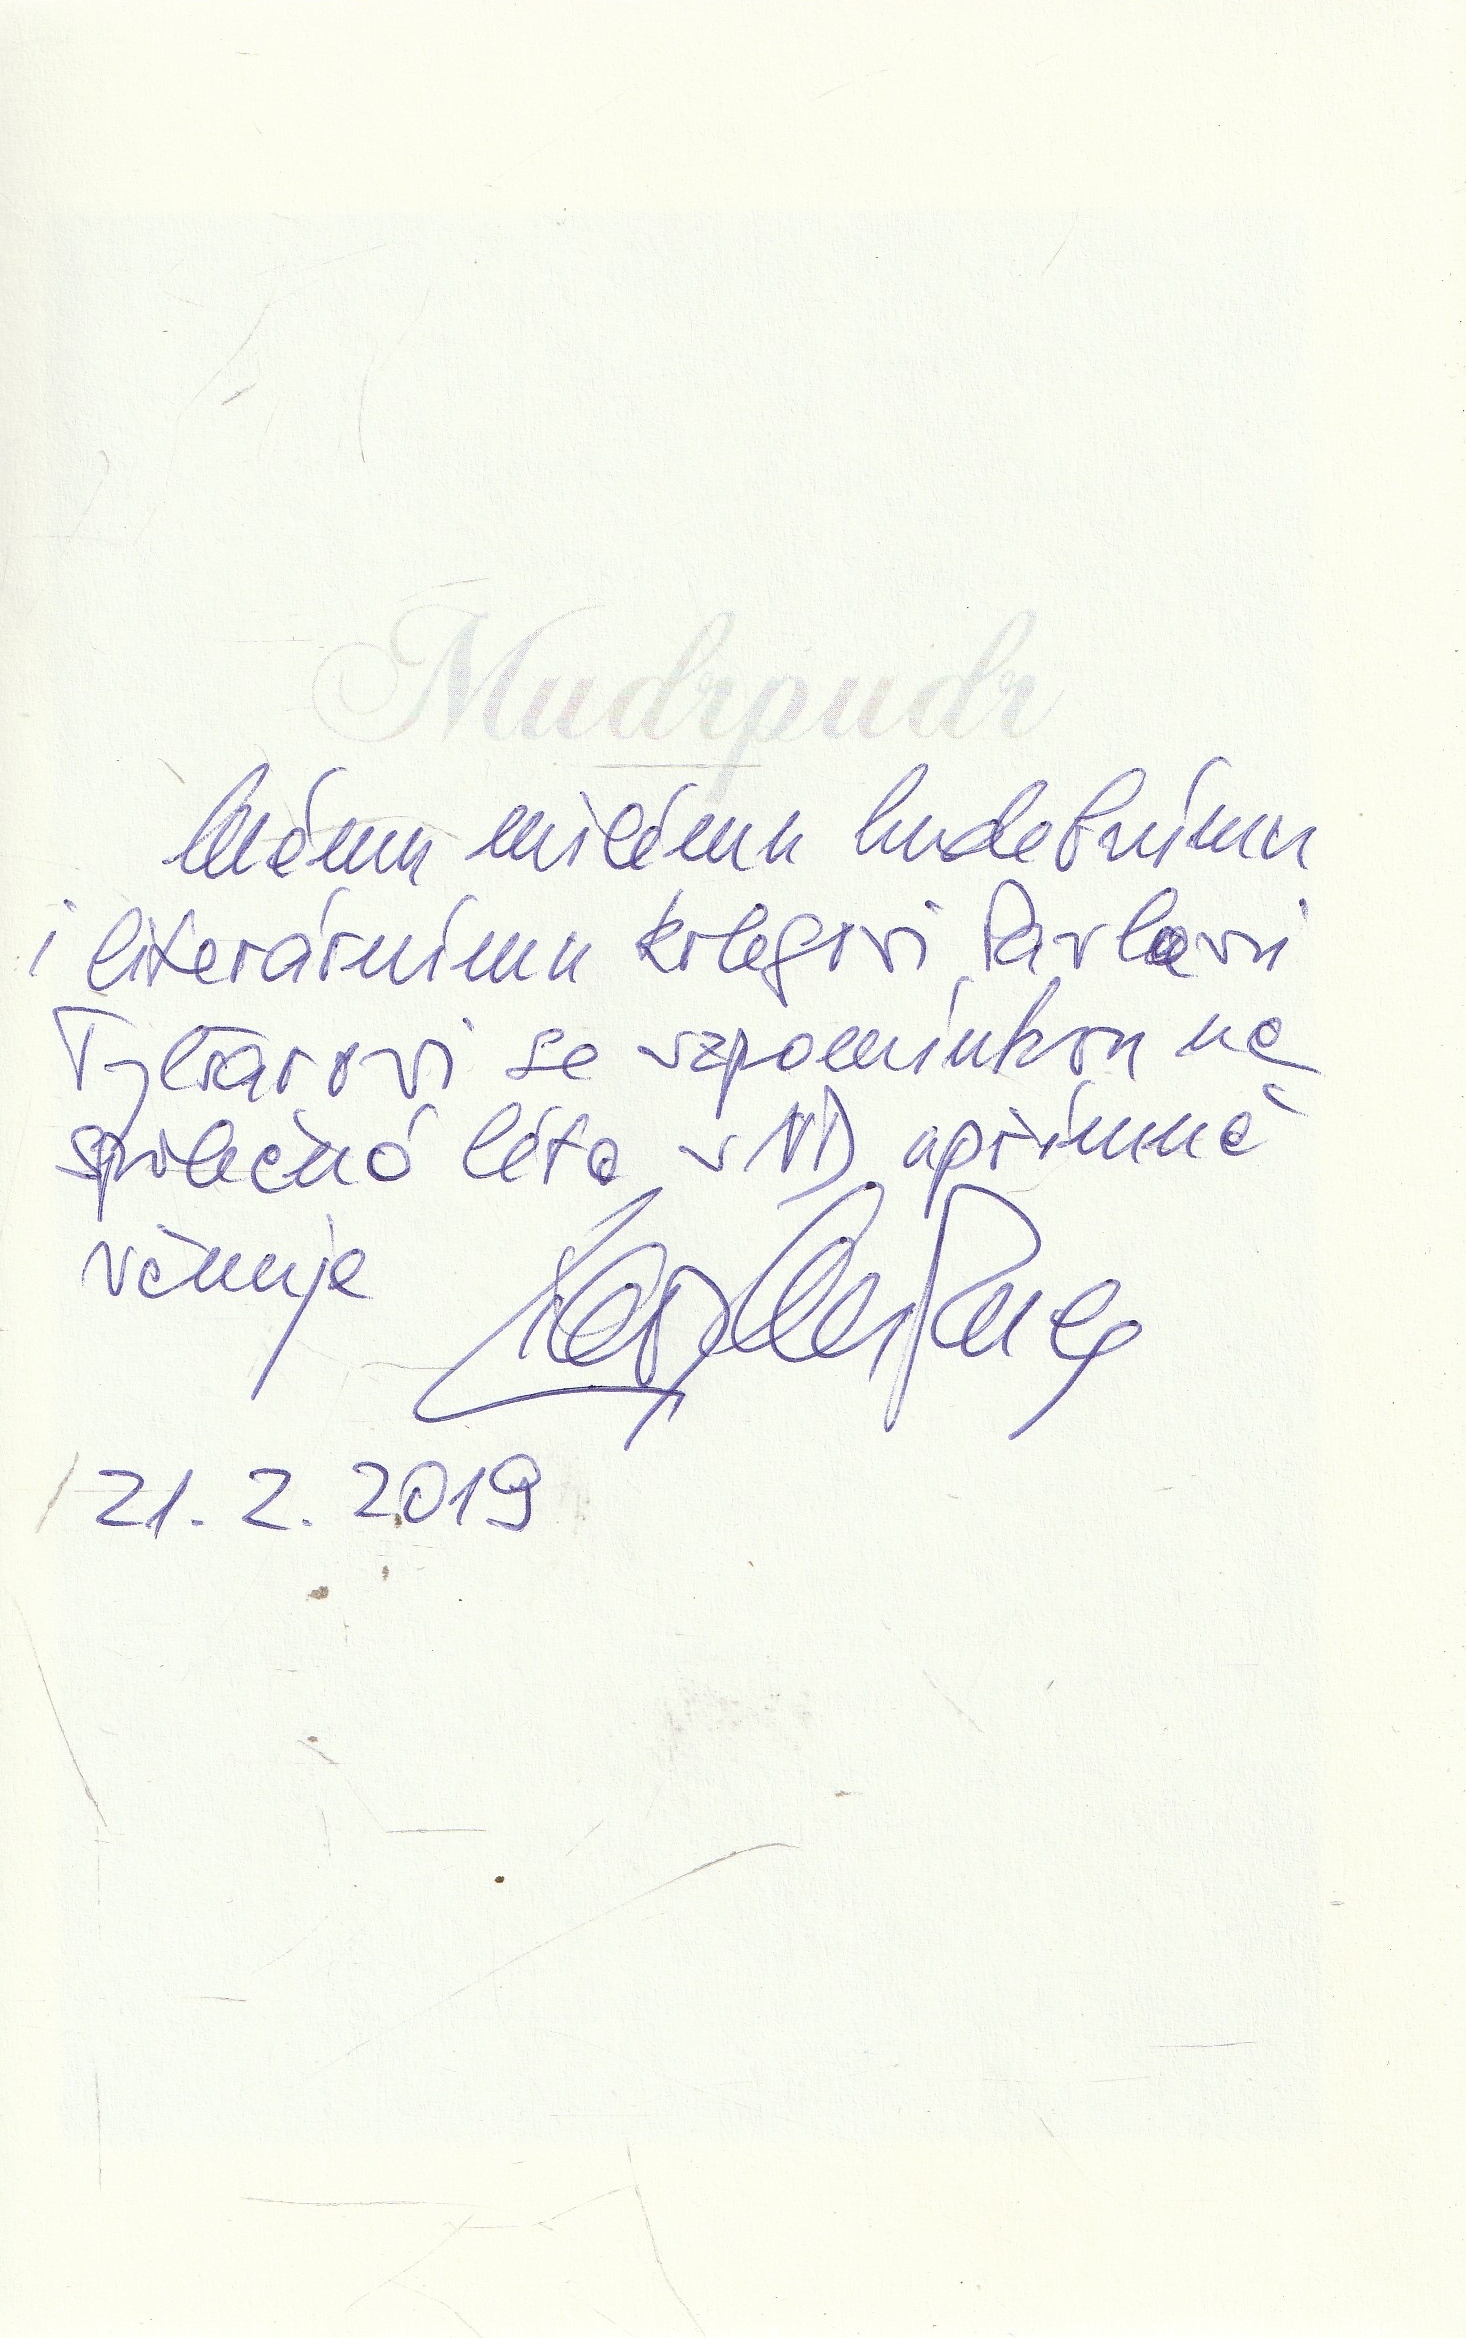 Mudrpudr
Mému milému hudebnímu
i literárnímu kolegovi Pavlovi
Tylšarovi se vzpomínkou na
společná léta v ND upřímně
věnuje
21. 2. 2019